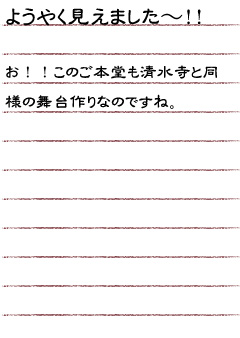 ようやく見えました～！！
お！！このご本堂も清水寺と同
様の舞台作りなのですね。